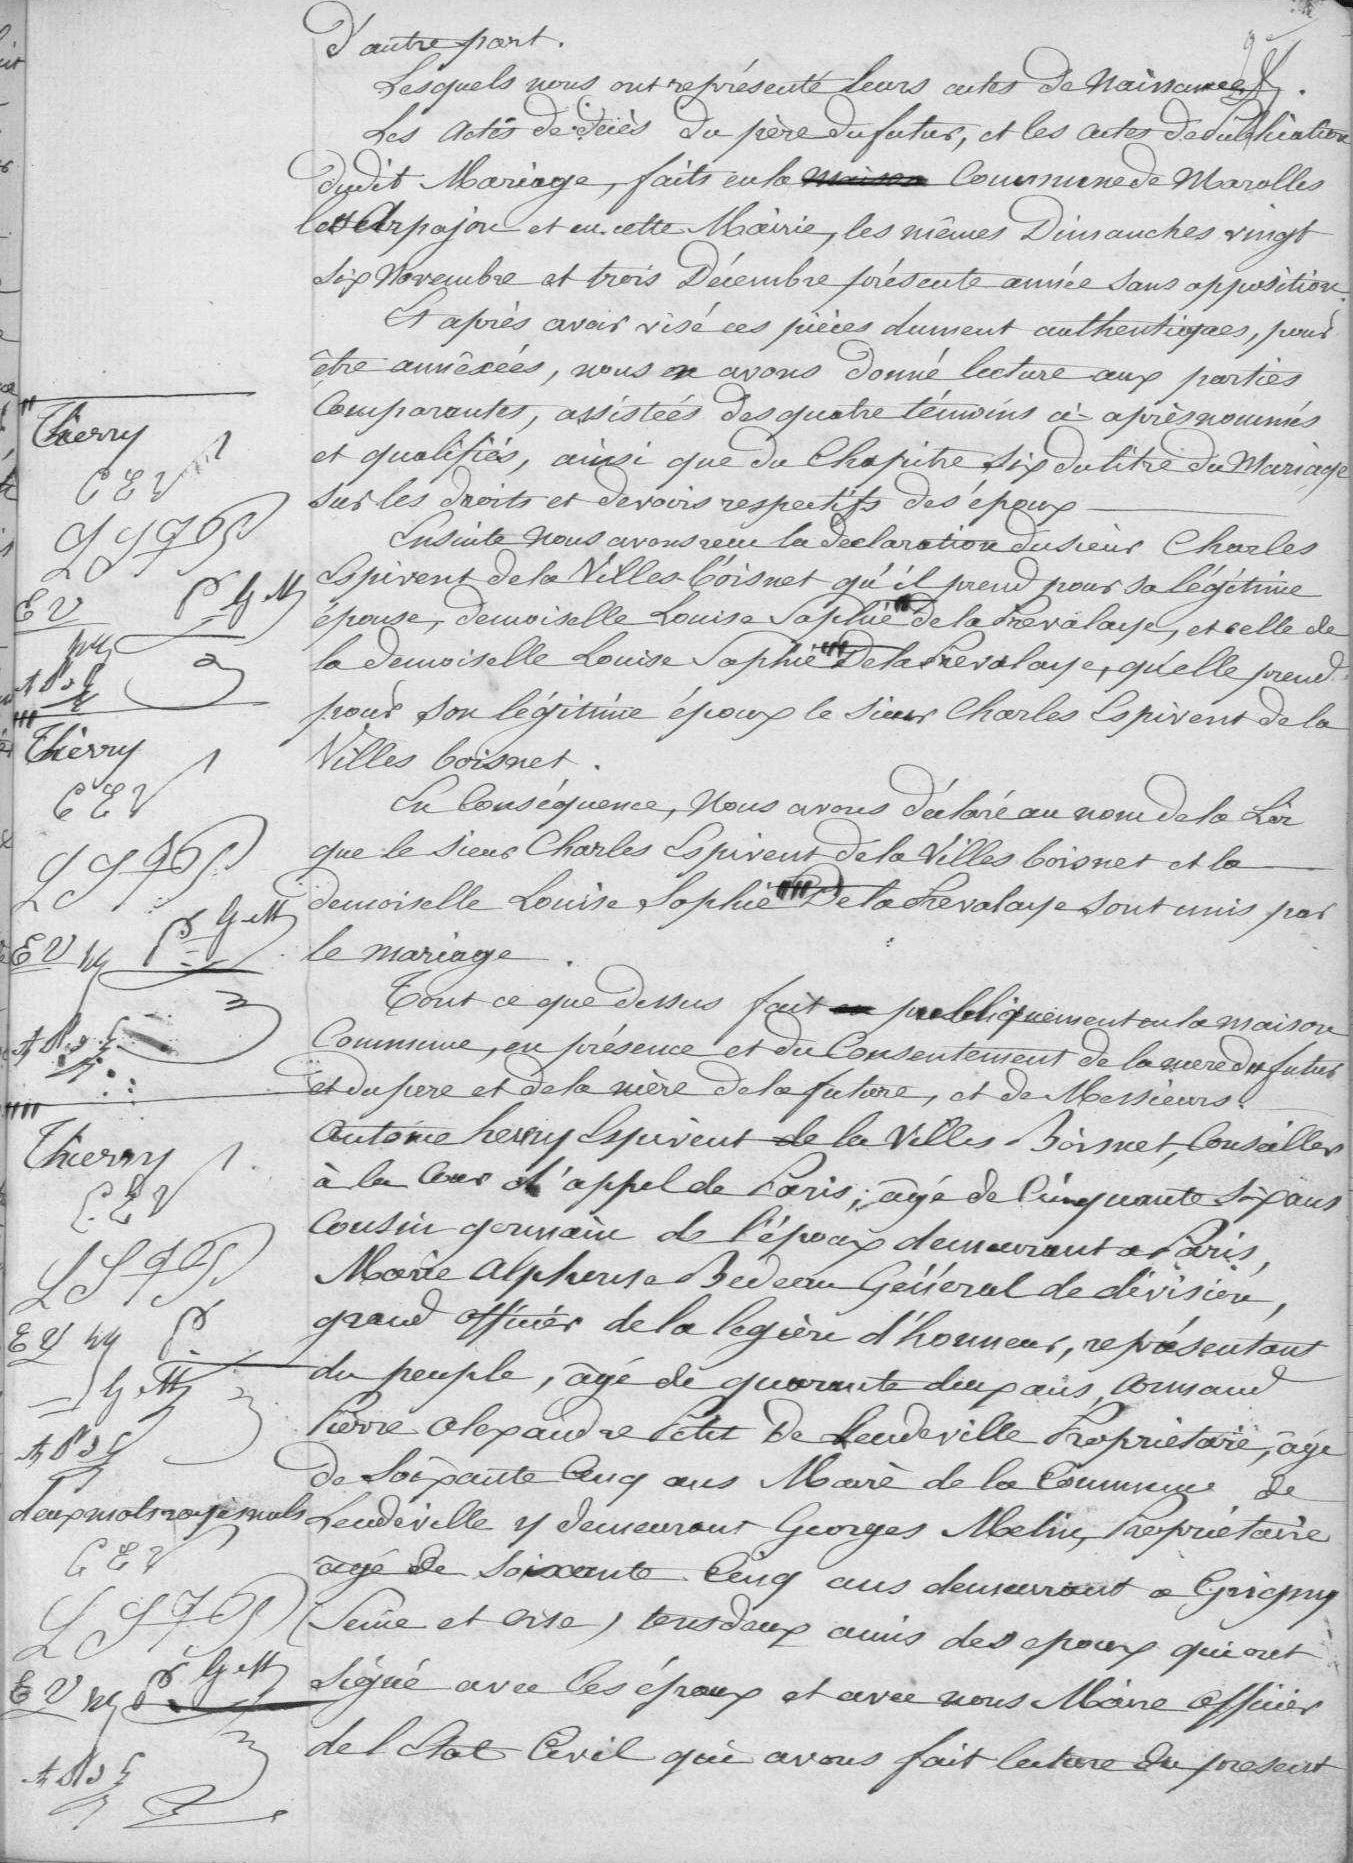 d'autre part.
Lesquels nous ont représenté leurs actes de Naissances.
Les Actes de décès du père du futur, et les actes de Publication
dudit Mariage, faits en la maison Commune de Marolles
les Arpajon et en cette Mairie, les mêmes Dimanches vingt
six Novembre et trois Décembre présente année sans opposition.
Et après avoir visé ces pièces dument authentiques, pour
être annéxéés, nous en avons donné lecture aux parties
Comparantes, assistéés des quatre témoins ci-après nommés
et qualifiés, ainsi que du Chapitre six du titre du Mariage
sur les droits et devoirs respectifs des époux
Ensuite Nous avons reçu la déclaration du sieur Charles
Espivent de la Villes-Boisnet qu'il prend pour sa légitime
épouse, demoiselle Louise Sophie " de la Prevalaye, et celle de
la demoiselle Louise Sophie "" De la Prevalaye, qu'elle prend
pour son légitime époux le sieur Charles Espivent de la
Villes boisnet.
En Conséquence, Nous avons déclaré au nom de la Loi
que le sieur Charles Espivent de la Villes boisnet et la
demoiselle Louise Sophie """ De la Prevalaye sont unis par
le mariage.
Tout ce que dessus fait en publiquement en la maison
Commune, en présence et du Consentement de la mere du futur
et du pere et de la mère de la future, et de Messieurs.
Antoine henry Espivent de la Villes Boisnet, Conseiller
à la Cour d'appel de Paris, âgé de Cinquante six ans
Cousin germain de l'époux demeurant a Paris,
Marie Alphonse Bedeau Général de division,
grand officier de la legion d'honneur, représentant
du peuple, âgé de quarante deux ans, Armand
Pierre Alexandre Petit De Leudeville Propriétaire, âgé
de Soixante Cinq ans Maire de la Commune de
Leudeville y demeurant Georges Melin, Propriétaire
âgé de soixante Cinq ans demeurant a Grigny
(Seine et oise) tous deux amis des epoux qui ont
signé avec les époux et avec nous Maire officier
de l'Etat Civil qui avons fait lecture du present
" Thierry
C E V
L S T P
E V P G M
"" Thierry
C E V
L S T P
E V P G M
""" Thierry
C E V
L S T P
E V P
G M
deux mots rayés nuls
C E V
L S T P
E V P G M